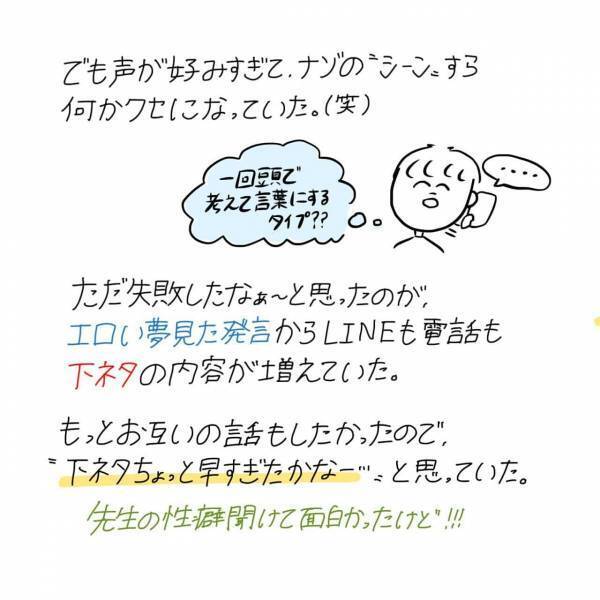 でも声が好みすぎて、ナゾの〝シーン〟すら
何かクセになっていた。(笑)
一回頭で
考えて言葉にする
タイプ??
‥‥
ただ失敗したなぁ〜と思ったのが、
エロい夢見た発言からLINEも電話も
下ネタの内容が増えていた。
もっとお互いの話もしたかったので、
〝下ネタちょっと早すぎたかなー…〟と思っていた。
先生の性癖聞けて面白かったけど!!!